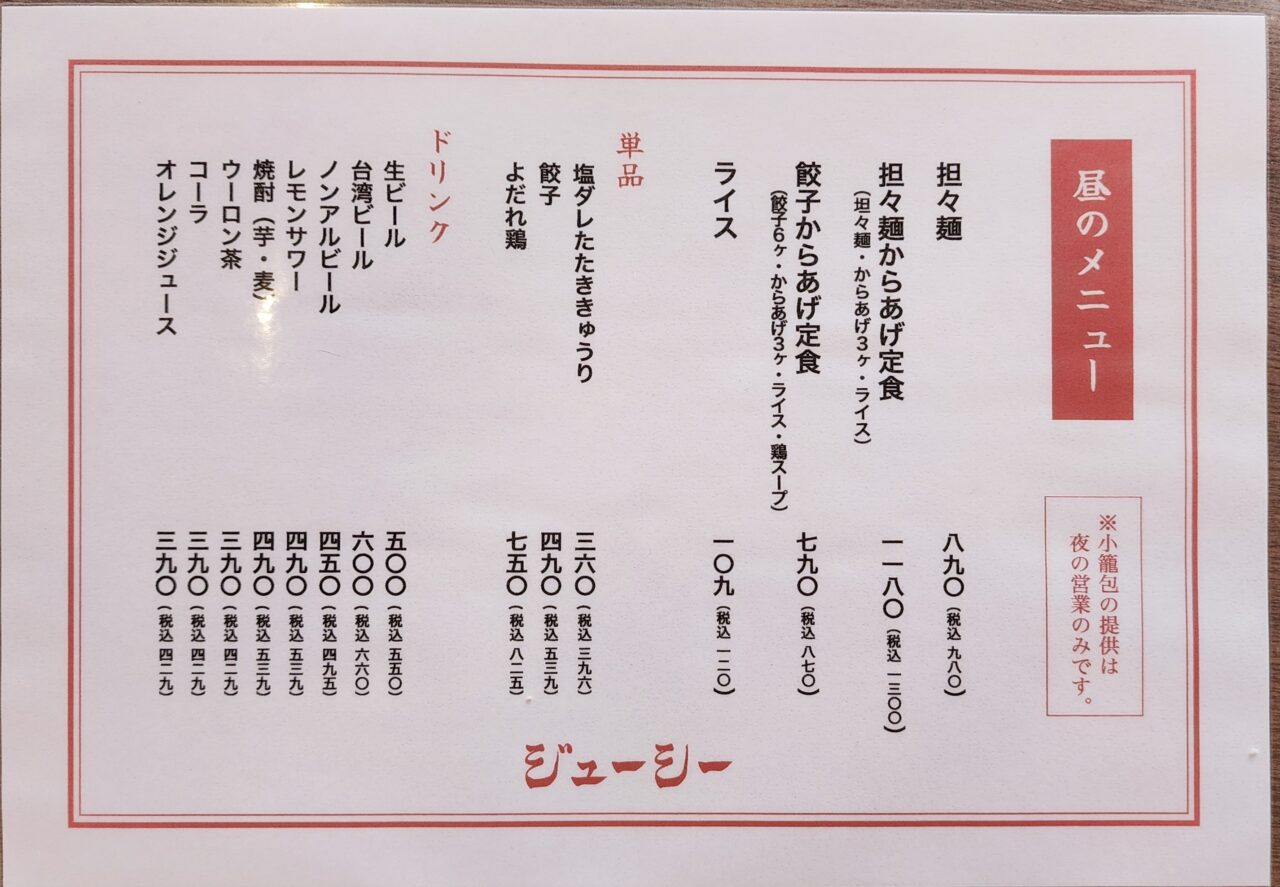 昼のメニュー
※小籠包の提供は
夜の営業のみです。
担々麺 八九〇（税込 九八〇）
担々麺からあげ定食 一一八〇（税込 一三〇〇）
（担々麺・からあげ３ヶ・ライス）
餃子からあげ定食 七九〇（税込 八七〇）
（餃子６ヶ・からあげ３ヶ・ライス・鶏スープ）
ライス 一〇九（税込 一二〇）
単品
塩ダレたたききゅうり 三六〇（税込 三九六）
餃子 四九〇（税込 五三九）
よだれ鶏 七五〇（税込 八二五）
ドリンク
生ビール 五〇〇（税込 五五〇）
台湾ビール 六〇〇（税込 六六〇）
ノンアルビール 四五〇（税込 四九五）
レモンサワー 四九〇（税込 五三九）
焼酎（芋・麦） 四九〇（税込 五三九）
ウーロン茶 三九〇（税込 四二九）
コーラ 三九〇（税込 四二九）
オレンジジュース 三九〇（税込 四二九）
ジューシー